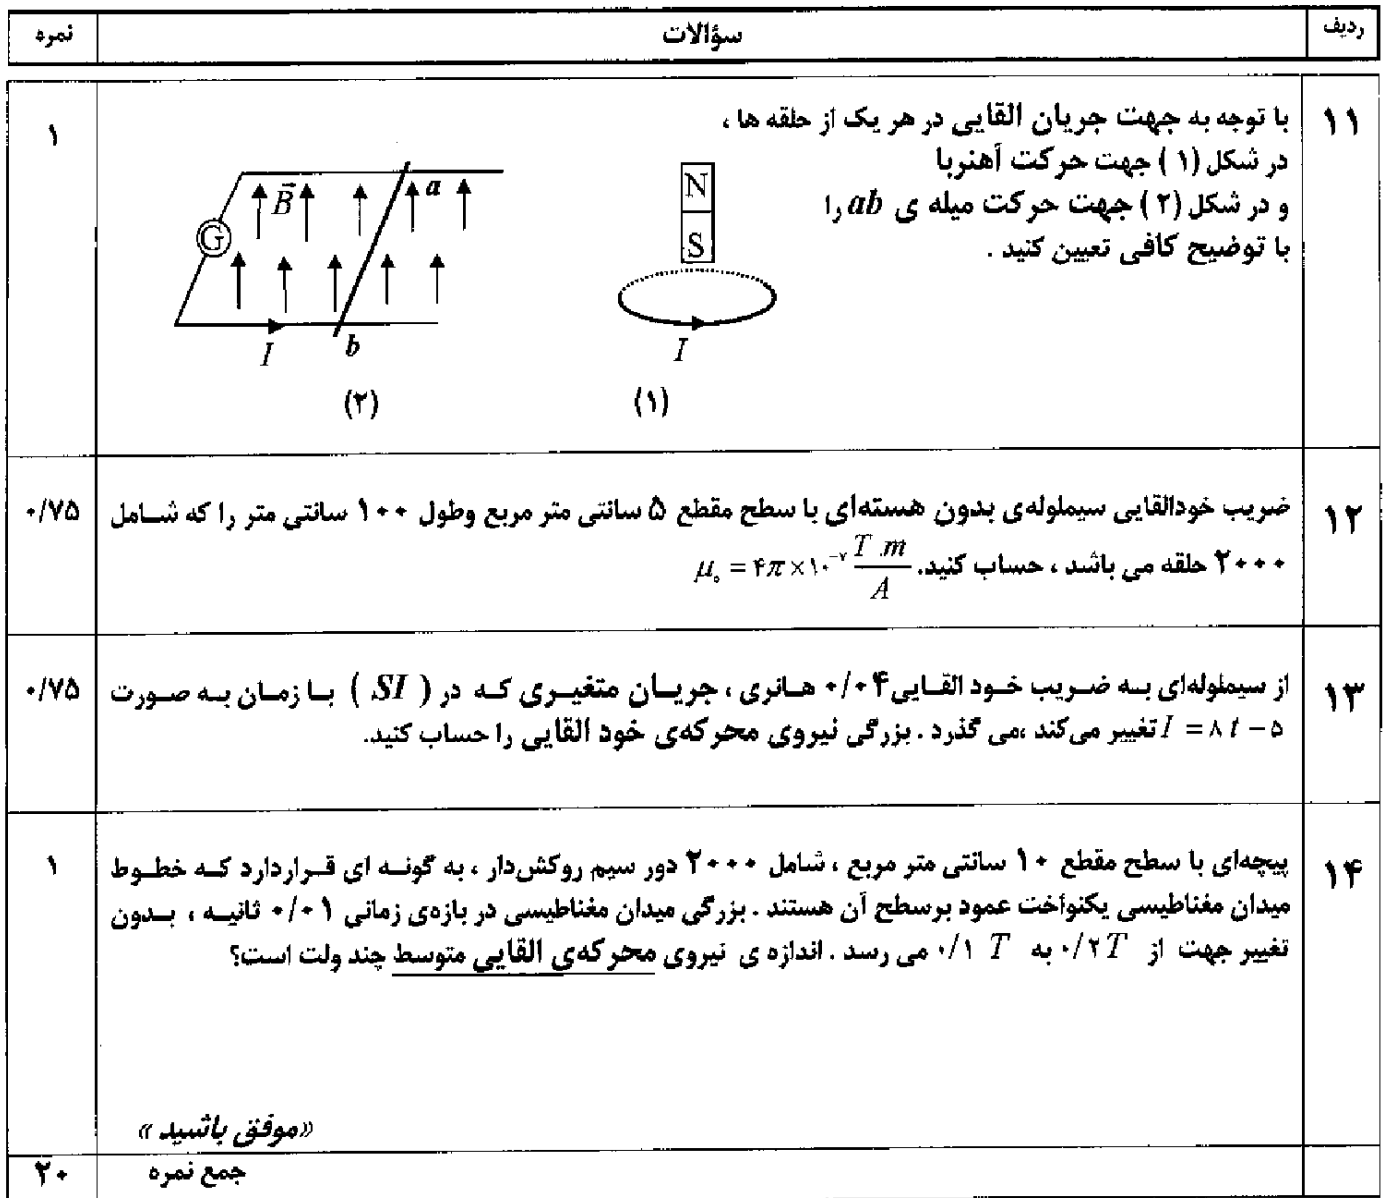 ردیف سؤالات نمره
۱۱ با توجه به جهت جریان القایی در هر یک از حلقه ها ، ۱
در شکل (۱) جهت حرکت آهنربا
و در شکل (۲) جهت حرکت میله ی ab را
با توضیح کافی تعیین کنید .
N
S
I
(۱)
a
B⃗
G
I
b
(۲)
۱۲ ضریب خودالقایی سیملوله‌ی بدون هسته‌ای با سطح مقطع ۵ سانتی متر مربع وطول ۱۰۰ سانتی متر را که شامل ۰/۷۵
۲۰۰۰ حلقه می باشد ، حساب کنید. μ₀ = ۴π×۱۰⁻⁷ T.m/A
۱۳ از سیملوله‌ای به ضریب خود القایی ۰/۰۴ هانری ، جریان متغیری که در ( SI ) با زمان به صورت ۰/۷۵
I = ۸ t − ۵ تغییر می‌کند ،می گذرد . بزرگی نیروی محرکه‌ی خود القایی را حساب کنید.
۱۴ پیچه‌ای با سطح مقطع ۱۰ سانتی متر مربع ، شامل ۲۰۰۰ دور سیم روکش‌دار ، به گونه ای قراردارد که خطوط ۱
میدان مغناطیسی یکنواخت عمود برسطح آن هستند . بزرگی میدان مغناطیسی در بازه‌ی زمانی ۰/۰۱ ثانیه ، بدون
تغییر جهت از ۰/۲ T به ۰/۱ T می رسد . اندازه ی نیروی محرکه‌ی القایی متوسط چند ولت است؟
«موفق باشید »
جمع نمره ۲۰